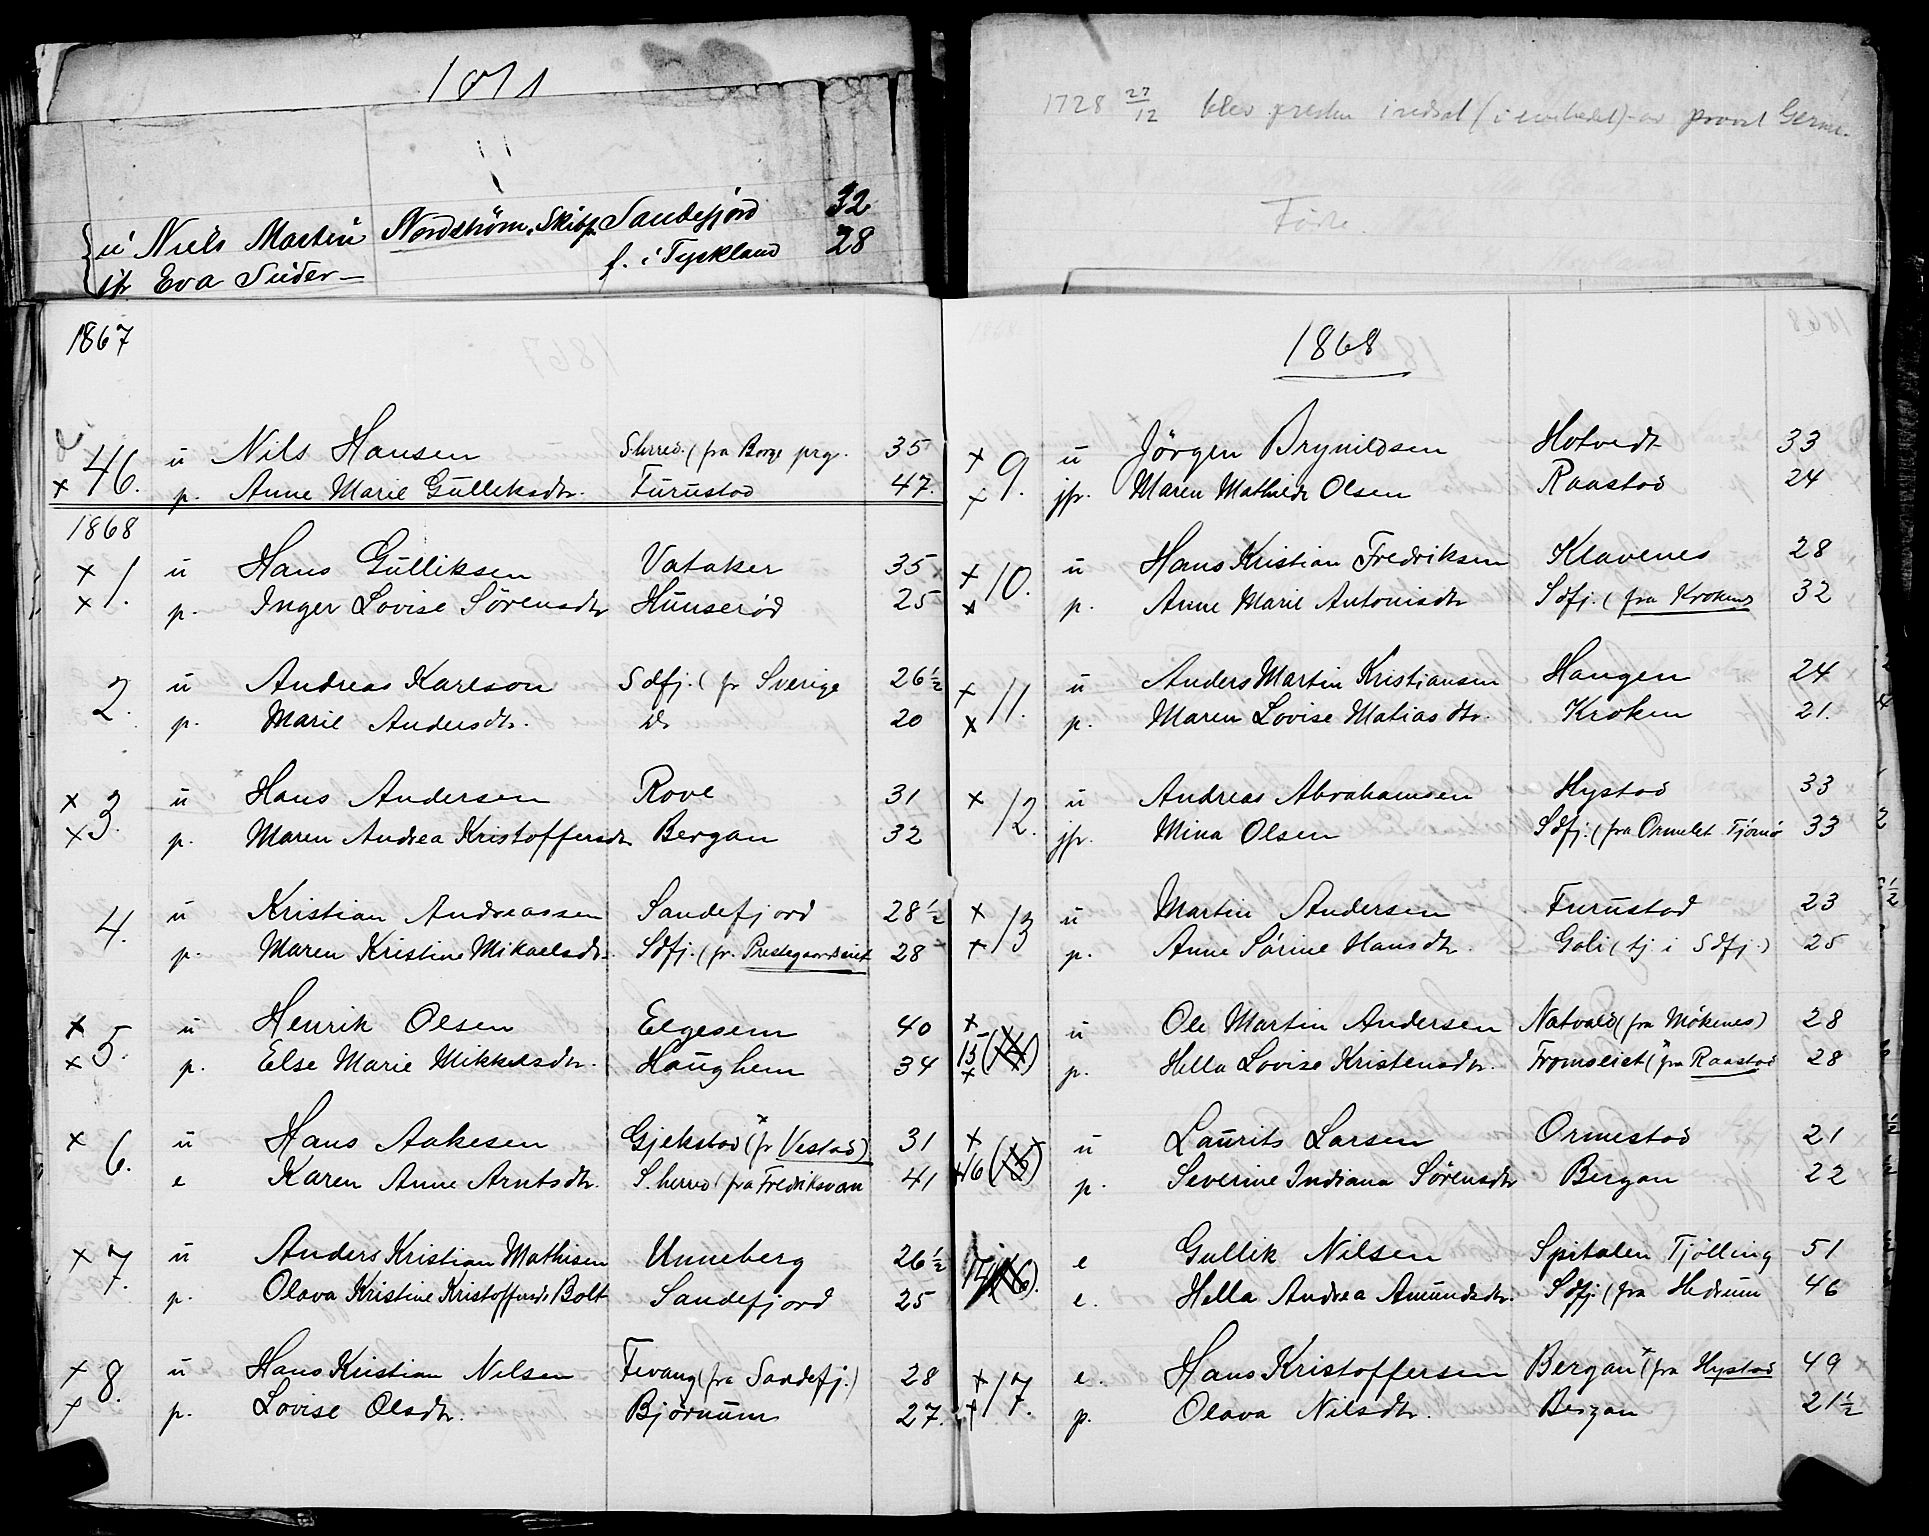 1871
u Niels Martin Nordstrøm, Skibsf. Sandefjord 32
jfr Eva Suder — f. i Tyskland 28
1867
46. u Nils Hansen S.herred. (fra Borge prg. 35
x p. Anne Marie Gulliksdtr. Furustad 47.
1868
x 1. u Hans Gulliksen Vataker 35
x p. Inger Lovise Sörensdtr Hunserød 25
2. u Andreas Karlson Sdfj. (fr Sverige 26½
p. Marie Andersdtr. id 20
x 3. u Hans Andersen Rove 31
x p. Maren Andrea Kristoffersdtr Bergan 32
4. u Kristian Andreassen Sandefjord 28½
p. Maren Kristine Mikaelsdtr. Sdfj. (fr. Prestegaardseiet 28
x 5. u Henrik Olsen Elgesem 40
x p. Else Marie Mikkelsdtr. Haughem 34
x 6. u Hans Aakesen Gjekstad (fr Vestad) 31
e Karen Anne Arntsdtr. S.herred (fra Fredriksværn 41
x 7. u Anders Kristian Mathisen Unneberg 26½
p. Olava Kristine Kristoffersdtr Bolt Sandefjord 25
x 8. u Hans Kristian Nilsen Fevang (fra Sandefj.) 28
x p. Lovise Olsdtr. Bjørnum 27.
1728 27/12 blev presten indsat (i embedet) av provst
Födte.
1868
x 9. u Jörgen Brynildsen Hotvedt 33
x jfr. Maren Mathilde Olsen Raastad 24
x 10. u Hans Kristian Fredriksen Klavenes 28
x p. Anne Marie Antonisdtr Sdfj. (fra Kroken) 32
x 11. u Anders Martin Kristiansen Haugen 24
x p. Maren Lovise Matiasdtr. Kroken 21.
x 12. u Andreas Abrahamsen Hystad 33
jfr. Mina Olsen Sdfj. (fra Ormelet Tjömø 33
x 13 u Martin Andersen Furustad 23
x p. Anne Sörine Hansdtr. Gali (tj. i Sdfj.) 25
x 15 (14) u Ole Martin Andersen Natvald (fra Mökenes) 28
x p. Hella Lovise Kristensdtr. Fromseiet (fra Raastad 28
x 16 (15) u Laurits Larsen Ormestad 21
x p. Severine Indiana Sörensdtr Bergan 22
14 (16). e Gullik Nilsen Spitalen Tjölling 51
e. Hella Andrea Amundsdtr. Sdfj. (fra Hedrum 46
x 17. e. Hans Kristoffersen Bergan (fra Hystad 49
x p. Olava Nilsdtr. Bergan 21½